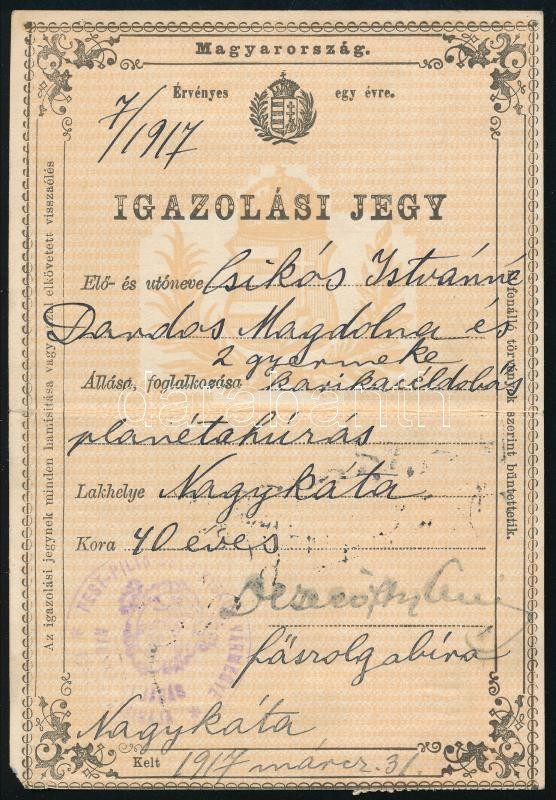 Magyarország.
Érvényes egy évre.
7/1917
IGAZOLÁSI JEGY
Elő- és utóneve Csikós Istvánné
Dandos Magdolna és
2 gyermeke
Állása, foglalkozása karikacéldobás
planétahúzás
Lakhelye Nagykáta
Kora 40 éves
főszolgabíró
Nagykáta
Kelt 1917 márcz. 31
Az igazolási jegynek minden hamisítása vagy azzal elkövetett visszaélés
a fenálló törvények szerint büntettetik.
PEST-PILIS
VÁRMEGYE
darabanth